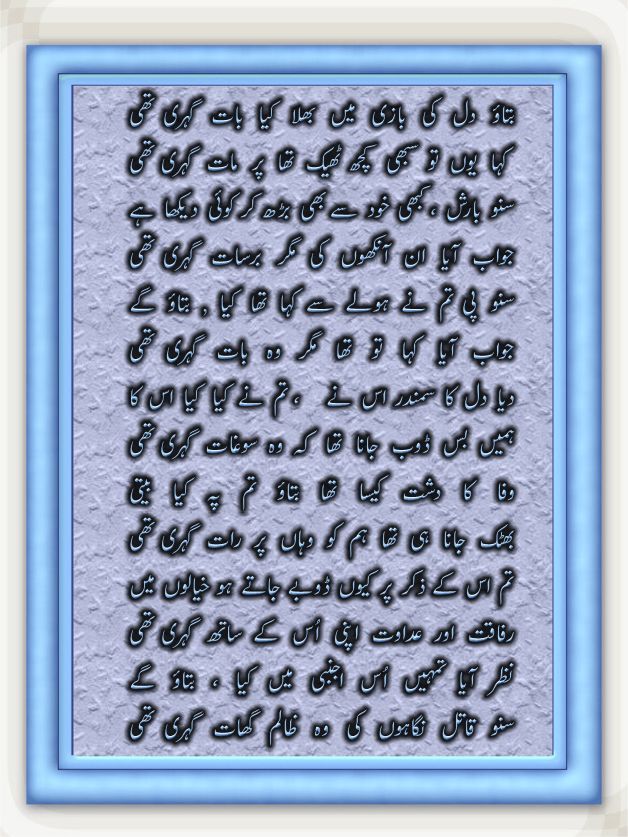 بتاؤ دل کی بازی میں بھلا کیا بات گہری تھی
کہا یوں تو سبھی کچھ ٹھیک تھا پر مات گہری تھی
سنو بارش ، کبھی خود سے بھی بڑھ کر کوئی دیکھا ہے
جواب آیا ان آنکھوں کی مگر برسات گہری تھی
سنو پی تم نے ہولے سے کہا تھا کیا , بتاؤ گے
جواب آیا کہا تو تھا مگر وہ بات گہری تھی
دیا دل کا سمندر اس نے ، تم نے کیا کیا اس کا
ہمیں بس ڈوب جانا تھا کہ وہ سوغات گہری تھی
وفا کا دشت کیسا تھا بتاؤ تم پہ کیا بیتی
بھٹک جانا ہی تھا ہم کو وہاں پر رات گہری تھی
تم اس کے ذکر پر کیوں ڈوبے جاتے ہو خیالوں میں
رفاقت اور عداوت اپنی اُس کے ساتھ گہری تھی
نظر آیا تمہیں اُس اجنبی میں کیا ، بتاؤ گے
سنو قاتل نگاہوں کی وہ ظالم گھات گہری تھی